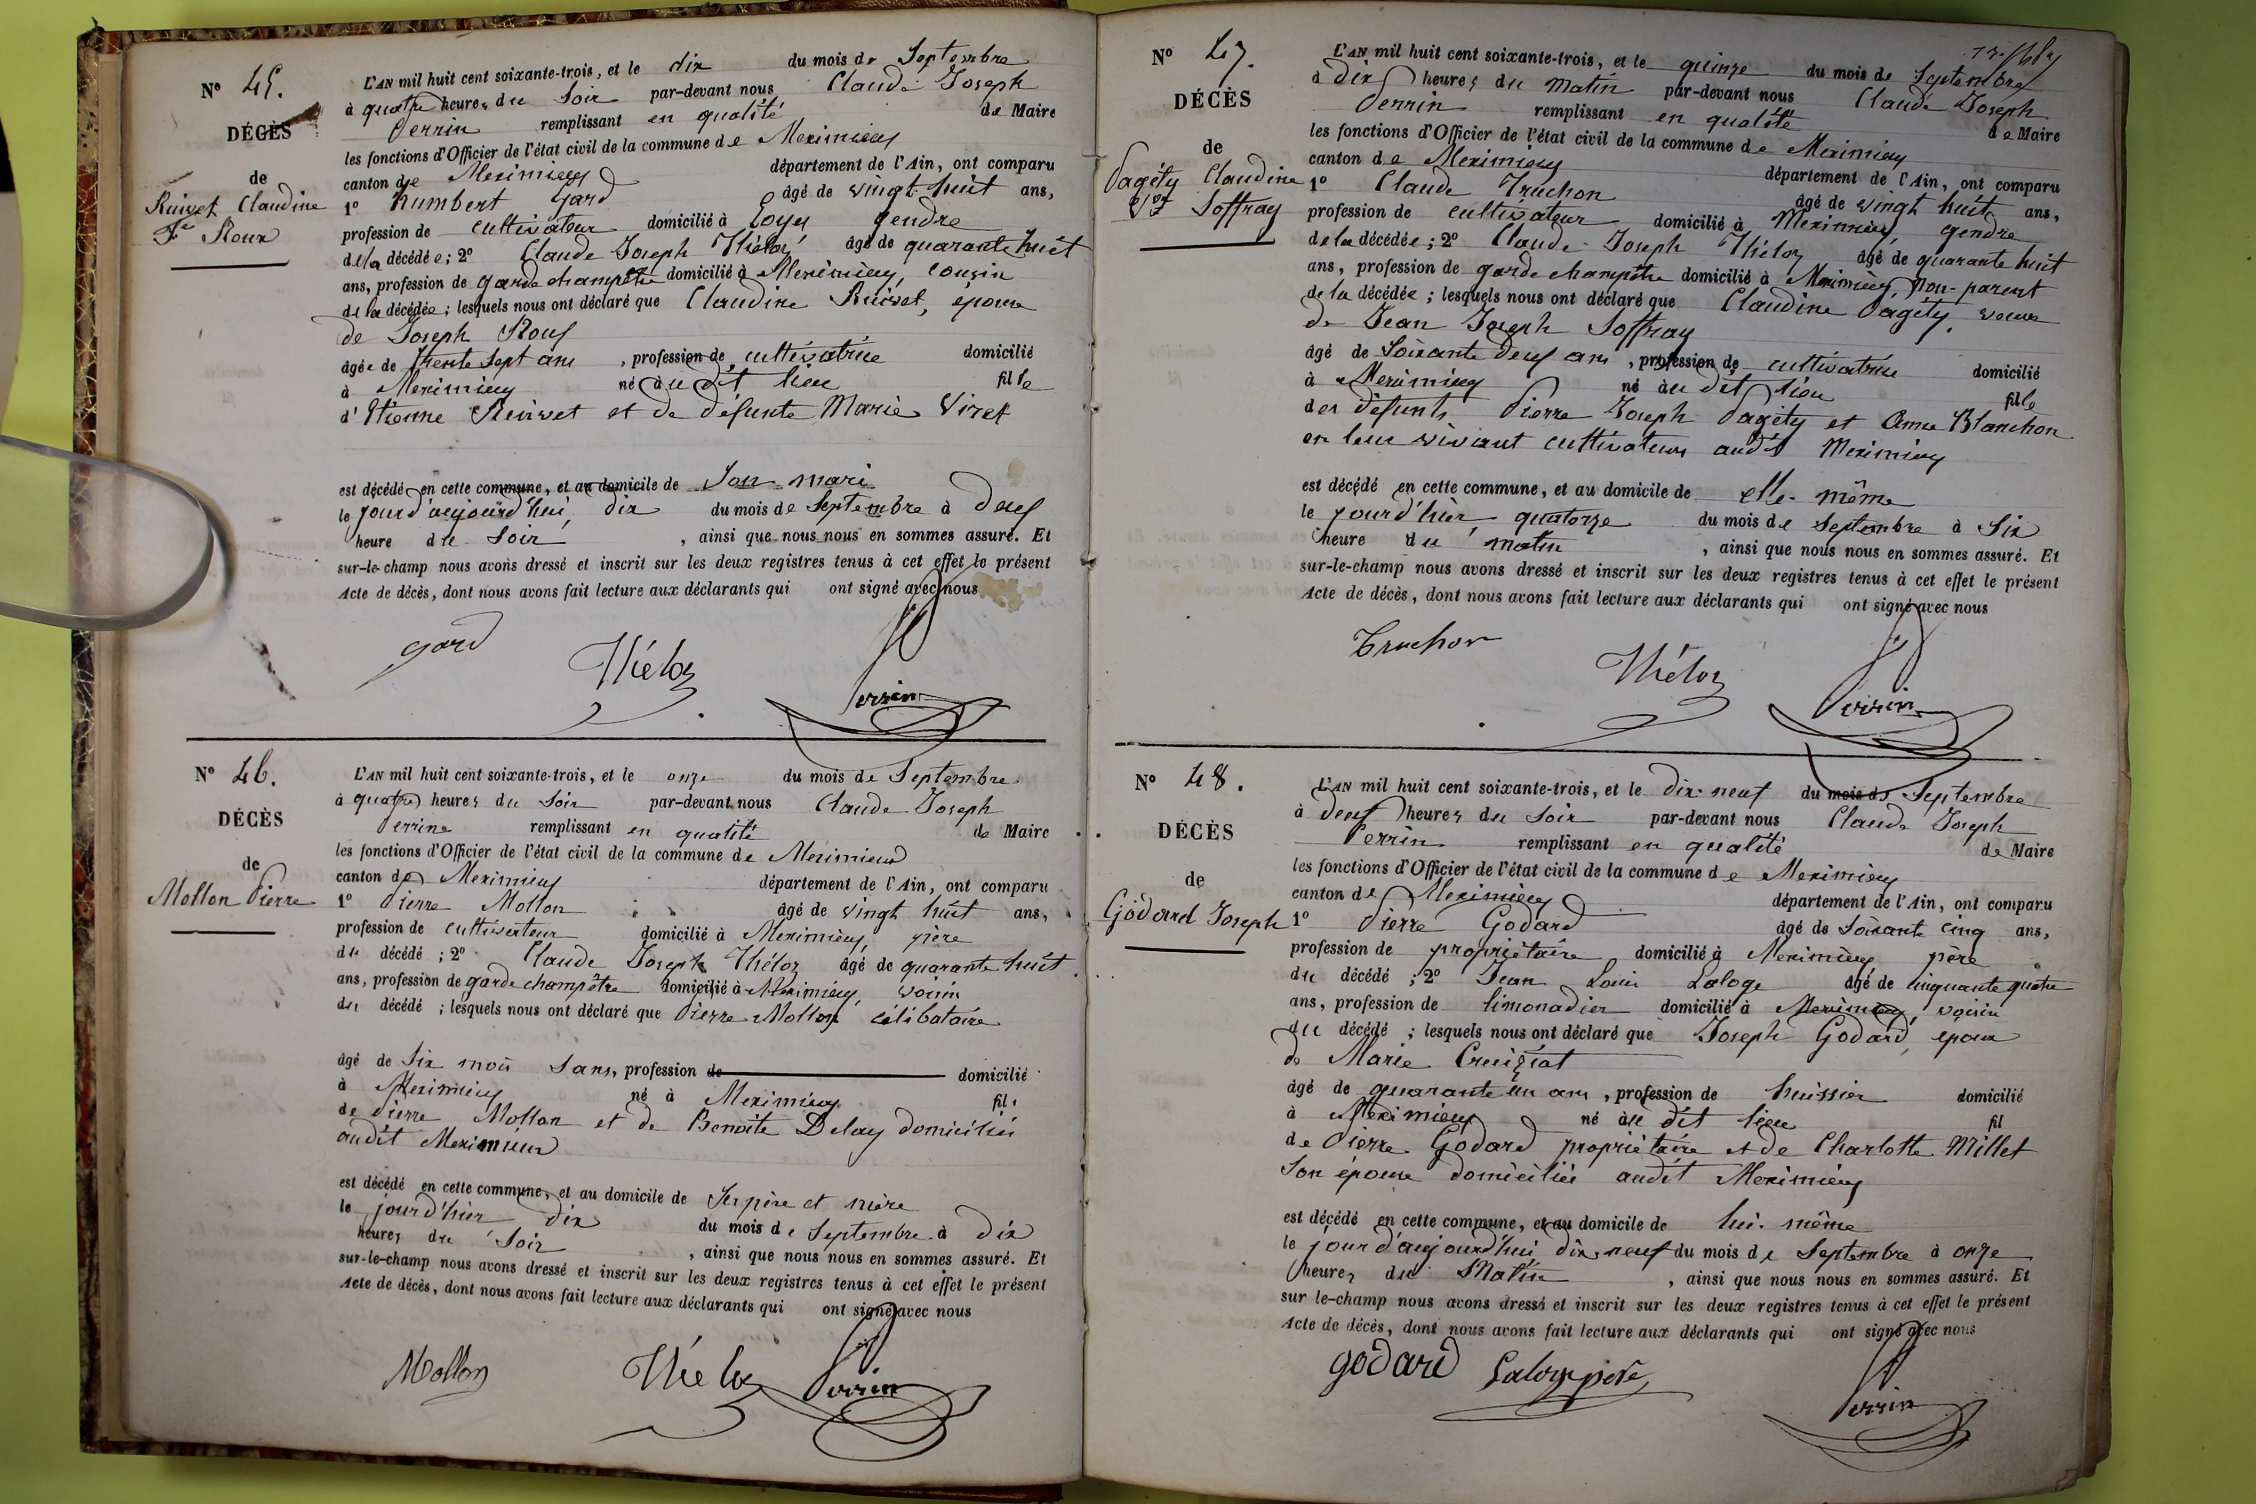 N° 45.
DÉCÈS
de
Ruivet Claudine
Fe Roux
L'AN mil huit cent soixante-trois, et le dix du mois de Septembre
à quatre heures du Soir par-devant nous Claude Joseph
Perrin remplissant en qualité de Maire
les fonctions d'Officier de l'état civil de la commune de Meximieux
canton de Meximieux département de l'Ain, ont comparu
1° humbert Gard âgé de vingt huit ans,
profession de cultivateur domicilié à Loyes gendre
de la décédée; 2° Claude Joseph Théloz âgé de quarante huit
ans, profession de garde champêtre domicilié à Meximieux, cousin
de la décédée; lesquels nous ont déclaré que Claudine Ruivet, épouse
de Joseph Roux
âgée de trente sept ans, profession de cultivatrice domicilié
à Meximieux né au dit lieu fille
d'Etienne Ruivet et de défunte Marie Viret
est décédé en cette commune, et au domicile de Son mari
le jourd'aujourd'hui, dix du mois de Septembre à deux
heure du Soir, ainsi que nous nous en sommes assuré. Et
sur-le-champ nous avons dressé et inscrit sur les deux registres tenus à cet effet le présent
Acte de décès, dont nous avons fait lecture aux déclarants qui ont signé avec nous
gard Théloz Perrin
N° 46.
DÉCÈS
de
Mollon Pierre
L'AN mil huit cent soixante-trois, et le onze du mois de Septembre
à quatre heures du Soir par-devant nous Claude Joseph
Perrine remplissant en qualité de Maire
les fonctions d'Officier de l'état civil de la commune de Meximieux
canton de Meximieux département de l'Ain, ont comparu
1° Pierre Mollon âgé de vingt huit ans,
profession de cultivateur domicilié à Meximieux, père
du décédé; 2° Claude Joseph Théloz âgé de quarante huit
ans, profession de garde champêtre domicilié à Meximieux, voisin
du décédé; lesquels nous ont déclaré que Pierre Mollon célibataire
âgé de Six mois Sans, profession de domicilié
à Meximieux né à Meximieux fils
de Pierre Mollon et de Benoite Delay domiciliés
audit Meximieux
est décédé en cette commune, et au domicile de Ses père et mère
le jourd'hier dix du mois de Septembre à dix
heures du Soir, ainsi que nous nous en sommes assuré. Et
sur-le-champ nous avons dressé et inscrit sur les deux registres tenus à cet effet le présent
Acte de décès, dont nous avons fait lecture aux déclarants qui ont signé avec nous
Mollon Théloz Perrin
N° 47.
DÉCÈS
de
Pagéty Claudine
Vve Joffray
L'AN mil huit cent soixante-trois, et le quinze du mois de Septembre
à dix heures du matin par-devant nous Claude Joseph
Perrin remplissant en qualité de Maire
les fonctions d'Officier de l'état civil de la commune de Meximieux
canton de Meximieux département de l'Ain, ont comparu
1° Claude Truchon âgé de vingt huit ans,
profession de cultivateur domicilié à Meximieux gendre
de la décédée; 2° Claude Joseph Théloz âgé de quarante huit
ans, profession de garde champêtre domicilié à Meximieux non-parent
de la décédée; lesquels nous ont déclaré que Claudine Pagéty, veuve
de Jean Joseph Joffray
âgé de Soixante deux ans, profession de cultivatrice domicilié
à Meximieux né au dit lieu fille
des défunts Pierre Joseph Pagéty et Anne Blanchon
en leur vivant cultivateurs audit Meximieux
est décédé en cette commune, et au domicile de elle-même
le jourd'hier quatorze du mois de Septembre à Six
heure du matin, ainsi que nous nous en sommes assuré. Et
sur-le-champ nous avons dressé et inscrit sur les deux registres tenus à cet effet le présent
Acte de décès, dont nous avons fait lecture aux déclarants qui ont signé avec nous
Truchon Théloz Perrin
N° 48.
DÉCÈS
de
Godard Joseph
L'AN mil huit cent soixante-trois, et le dix-neuf du mois de Septembre
à deux heures du Soir par-devant nous Claude Joseph
Perrin remplissant en qualité de Maire
les fonctions d'Officier de l'état civil de la commune de Meximieux
canton de Meximieux département de l'Ain, ont comparu
1° Pierre Godard âgé de Soixante cinq ans,
profession de propriétaire domicilié à Meximieux père
du décédé; 2° Jean Louis Laloge âgé de cinquante quatre
ans, profession de limonadier domicilié à Meximieux, voisin
du décédé; lesquels nous ont déclaré que Joseph Godard, époux
de Marie Cruiziat
âgé de quarante un ans, profession de huissier domicilié
à Meximieux né au dit lieu fil
de Pierre Godard propriétaire et de Charlotte Millet
Son épouse domiciliés audit Meximieux
est décédé en cette commune, et au domicile de lui-même
le jourd'aujourd'hui dix-neuf du mois de Septembre à onze
heures du Matin, ainsi que nous nous en sommes assuré. Et
sur le-champ nous avons dressé et inscrit sur les deux registres tenus à cet effet le présent
Acte de décès, dont nous avons fait lecture aux déclarants qui ont signé avec nous
godard Laloge père Perrin